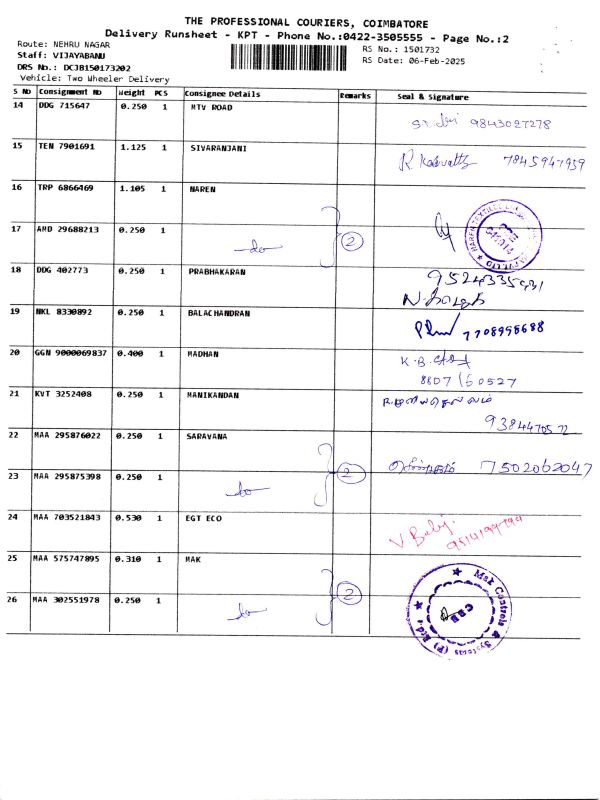 THE PROFESSIONAL COURIERS, COIMBATORE
Delivery Runsheet - KPT - Phone No.:0422-3505555 - Page No.:2
Route: NEHRU NAGAR
RS No.: 1501732
Staff: VIJAYABANU
RS Date: 06-Feb-2025
DRS No.: DCJB150173202
Vehicle: Two Wheeler Delivery
S NO Consignment NO Weight PCS Consignee Details Remarks Seal & Signature
14 DDG 715647 0.250 1 MTV ROAD
9843027278
15 TEN 7901691 1.125 1 SIVARANJANI
7845947959
16 TRP 6866469 1.105 1 NAREN
17 AMD 29688213 0.250 1
do 2
18 DDG 402773 0.250 1 PRABHAKARAN
9524335931
19 NKL 8330892 0.250 1 BALACHANDRAN
7708998688
20 GGN 9000069837 0.400 1 MADHAN
K.B.
8807160527
21 KVT 3252408 0.250 1 MANIKANDAN
9384470572
22 MAA 295876022 0.250 1 SARAVANA
7502062047
23 MAA 295875398 0.250 1
do 2
24 MAA 703521843 0.530 1 EGT ECO
V Babj.
25 MAA 575747895 0.310 1 MAK
26 MAA 302551978 0.250 1
do 2
Mak Controls & Systems (P) Ltd.
CBE